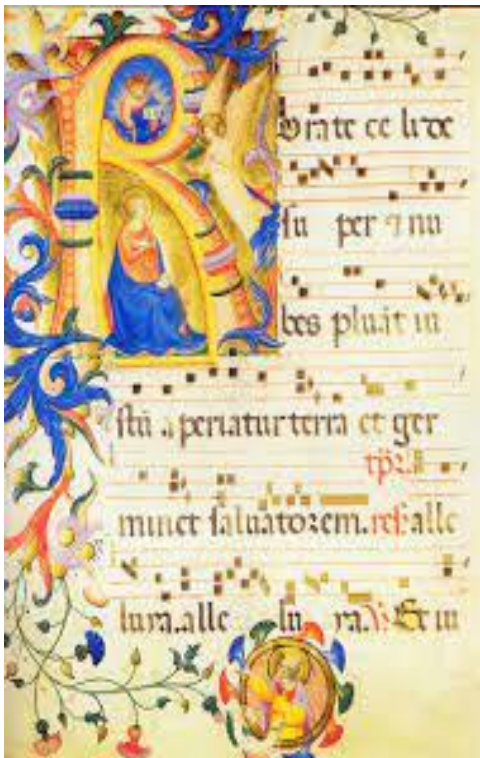 R orate celi de
su per ⁊ nu
bes pluāt iu
stū aperiatur terra et ger
tp̄r.
minet saluatorem. res. alle
luya. alle lu ya. V. Et iu